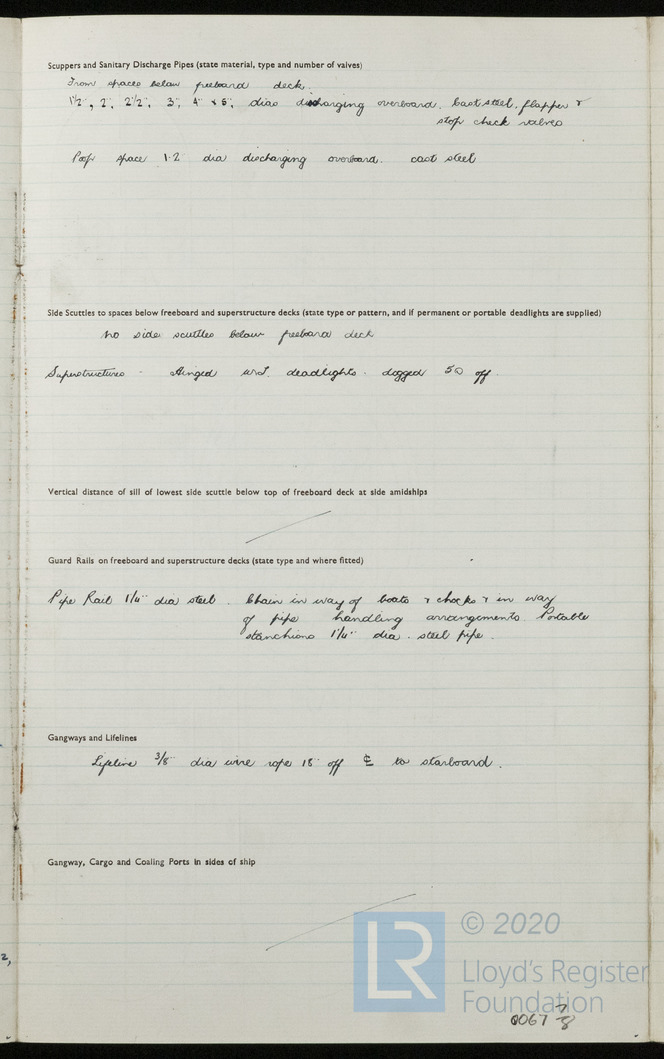 Scuppers and Sanitary Discharge Pipes (state material, type and number of valves)
From spaces below freeboard deck.
1½", 2", 2½", 3", 4" & 5", dias discharging overboard. Cast steel, flapper &
stop check valves
Poop space 1·2" dia discharging overboard. cast steel
Side Scuttles to spaces below freeboard and superstructure decks (state type or pattern, and if permanent or portable deadlights are supplied)
No side scuttles below freeboard deck
Superstructures - Hinged deadlights. dogged 50 off.
Vertical distance of sill of lowest side scuttle below top of freeboard deck at side amidships
Guard Rails on freeboard and superstructure decks (state type and where fitted)
Pipe Rail 1¼" dia steel. Chain in way of boats & chocks & in way
of pipe handling arrangements. Portable
stanchions 1¼" dia. steel pipe.
Gangways and Lifelines
Lifeline 3/8" dia wire rope 18" off ℄ to starboard.
Gangway, Cargo and Coaling Ports in sides of ship
2,
© 2020
LR
Lloyd's Register
Foundation
0067 7/8